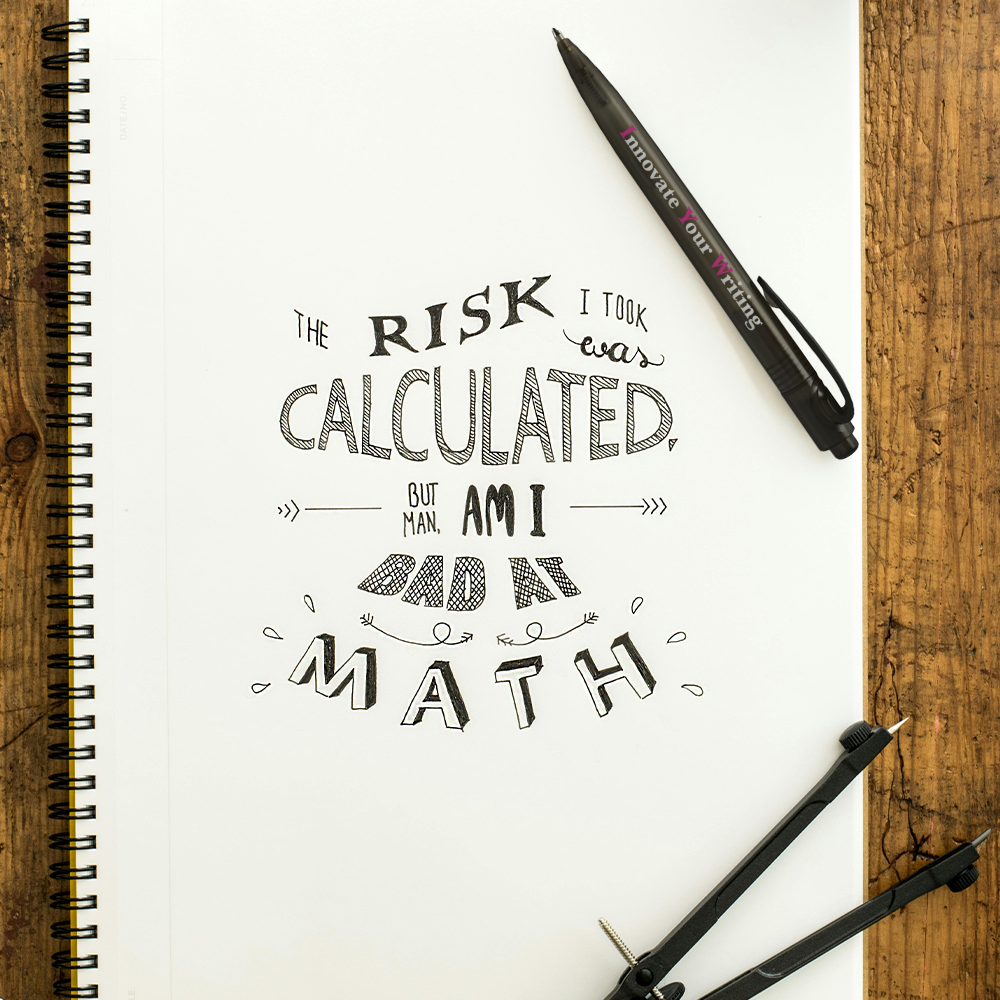 THE RISK I TOOK
was
CALCULATED,
BUT
MAN, AM I
BAD AT
MATH
Innovate Your Writing
DATE/NO